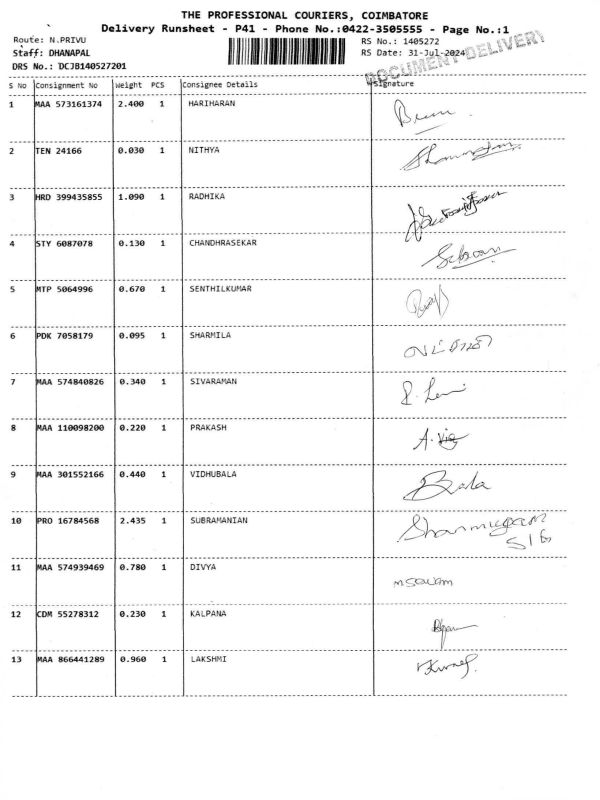 THE PROFESSIONAL COURIERS, COIMBATORE
Delivery Runsheet - P41 - Phone No.:0422-3505555 - Page No.:1
Route: N.PRIVU RS No.: 1405272
Staff: DHANAPAL RS Date: 31-Jul-2024
DRS No.: DCJB140527201
DOCUMENT DELIVERY
S No Consignment No Weight PCS Consignee Details Signature
1 MAA 573161374 2.400 1 HARIHARAN
2 TEN 24166 0.030 1 NITHYA
3 HRD 399435855 1.090 1 RADHIKA
4 STY 6087078 0.130 1 CHANDHRASEKAR
5 MTP 5064996 0.670 1 SENTHILKUMAR
6 PDK 7058179 0.095 1 SHARMILA
7 MAA 574840826 0.340 1 SIVARAMAN
8 MAA 110098200 0.220 1 PRAKASH
9 MAA 301552166 0.440 1 VIDHUBALA Bala
10 PRO 16784568 2.435 1 SUBRAMANIAN Shanmugam
11 MAA 574939469 0.780 1 DIVYA
12 CDM 55278312 0.230 1 KALPANA
13 MAA 866441289 0.960 1 LAKSHMI